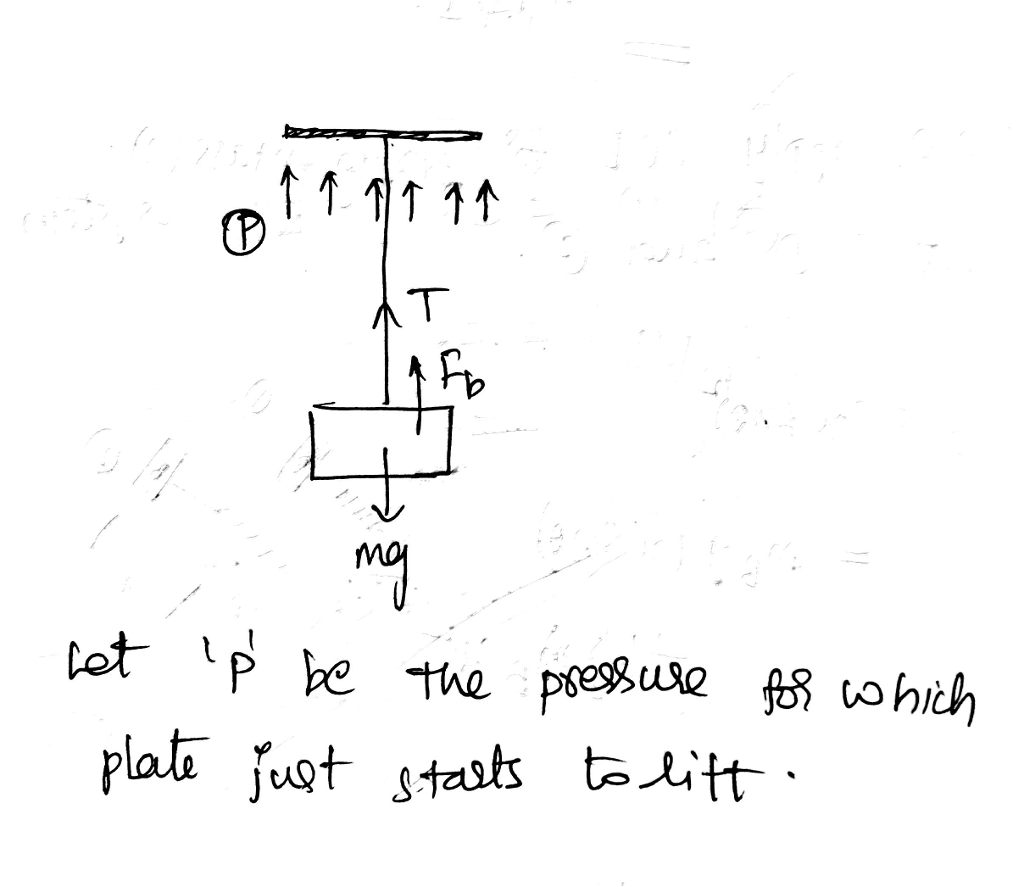 P
T
Fb
mg
Let 'p' be the pressure for which
plate just starts to lift.